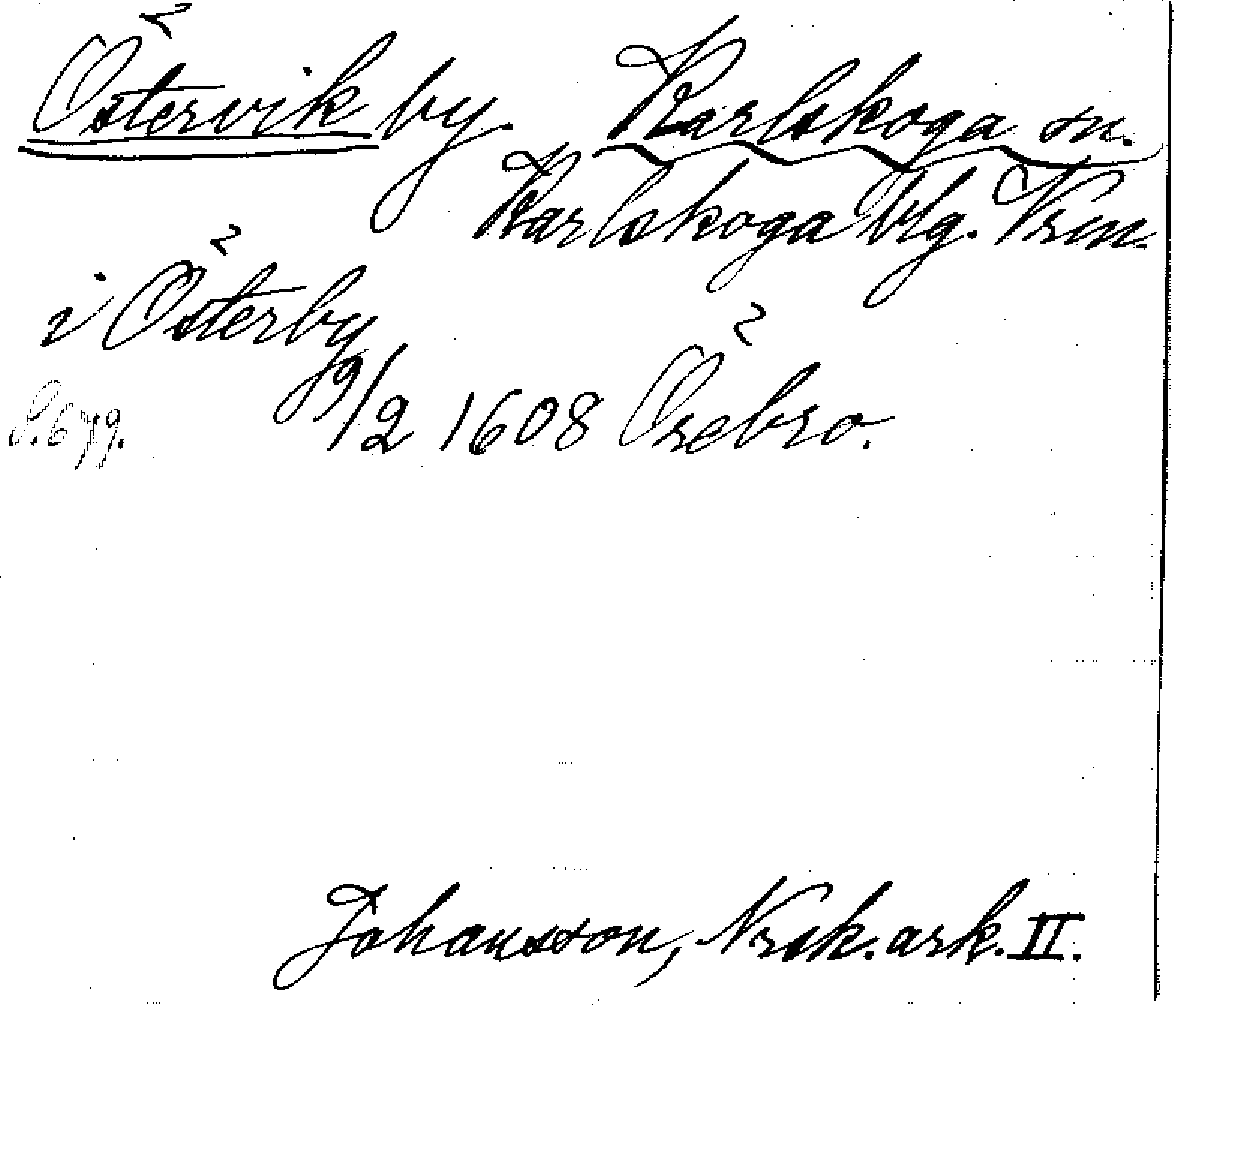 Östervik by. Karlskoga sn.
Karlskoga blg. Vrm.
i Österby
19/2 1608 Örebro.
S. 679.
Johansson, Norsk. ark. II.